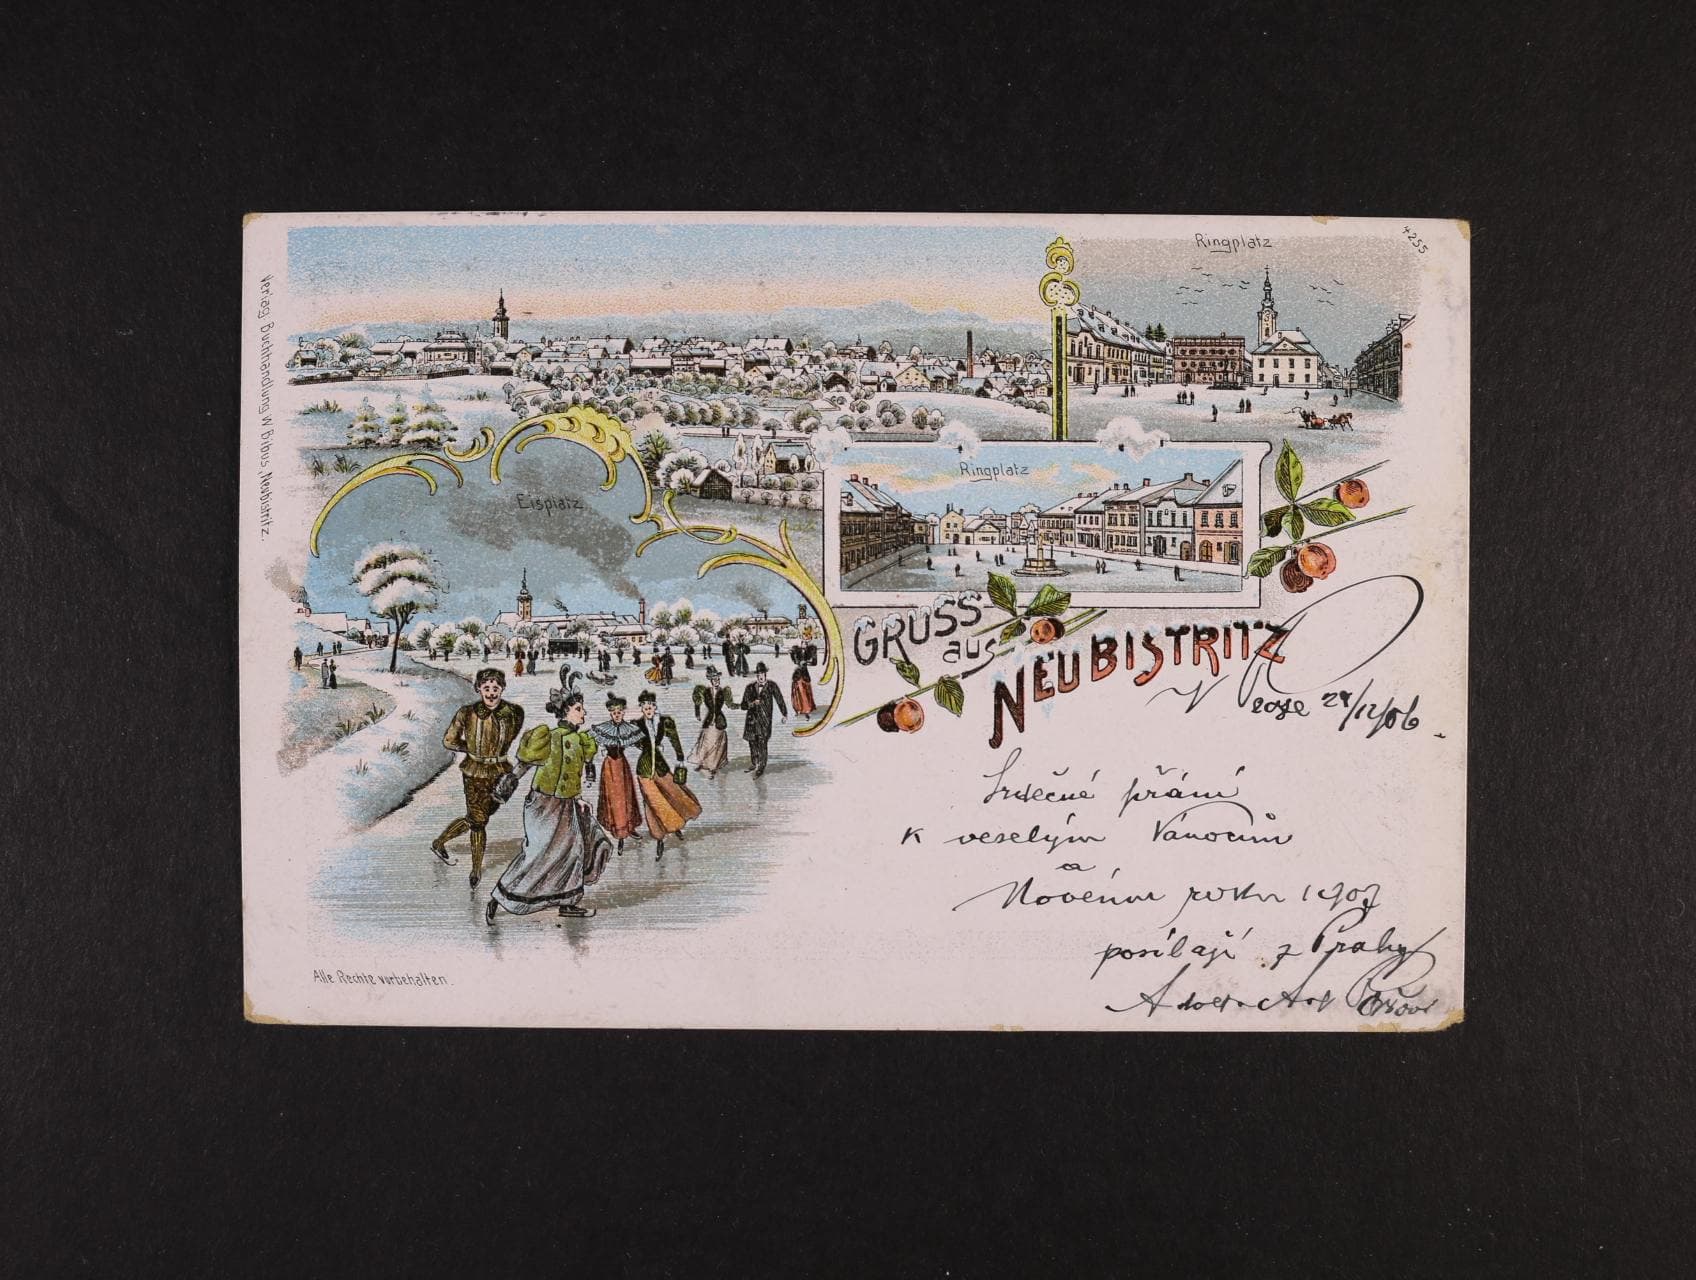 Ringplatz
4255
Ringplatz
Eisplatz
Verlag Buchhandlung W. Bilbus, Neubistritz.
GRUSS
aus
NEUBISTRITZ
V 24/12/06.
Srdečné přání
k veselým Vánocům
a
Novému roku 1907
posílají z Prahy
Alle Rechte vorbehalten.